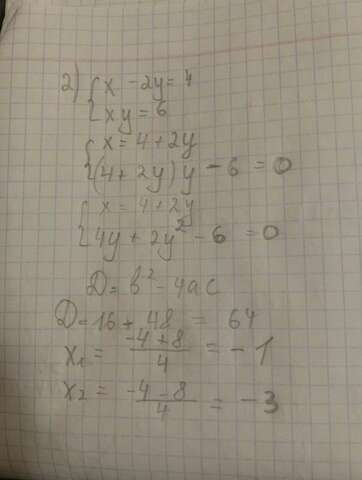 2) { x - 2y = 4
{ xy = 6
{ x = 4 + 2y
{ (4 + 2y) y - 6 = 0
{ x = 4 + 2y
{ 4y + 2y² - 6 = 0
D = b² - 4ac
D = 16 + 48 = 64
x₁ = (-4 + 8)/4 = - 1
x₂ = (-4 - 8)/4 = - 3